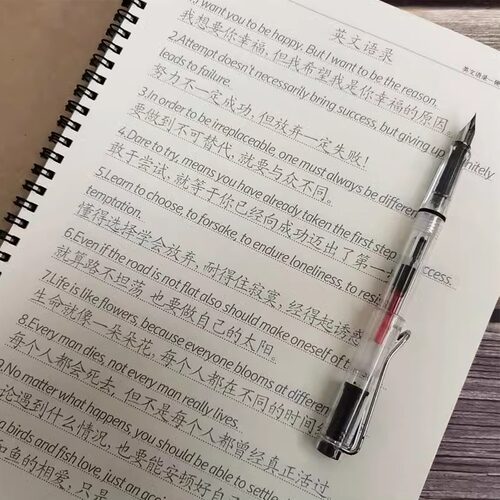 英文语录
英文语录
I want you to be happy. But I want to be the reason.
我想要你幸福,但我希望我是你幸福的原因。
2.Attempt doesn't necessarily bring success, but giving up
leads to failure.
努力不一定成功,但放弃一定失败!
3.In order to be irreplaceable, one must always be different
要做到不可替代,就要与众不同。
4.Dare to try, means you have already taken the first step
敢于尝试,就等于你已经向成功迈出了第一
5.Learn to choose, to forsake, to endure loneliness, to resist
temptation.
懂得选择学会放弃,耐得住寂寞,经得起诱惑
6.Even if the road is not flat also should make oneself of
就算路不坦荡,也要做自己的太阳。
7.Life is like flowers, because everyone blooms at different
生命就像一朵朵花,每个人都在不同的时间
8.Every man dies, not every man really lives.
每个人都会死去,但不是每个人都曾经真正活过
No matter what happens, you should be able to settle
论遇到什么情况,也要能安顿好自己
birds and fish love, just an
和鱼的相爱,只是